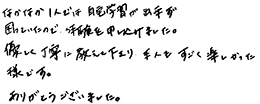 なかなか1人では自宅学習が出来ず
困っていたので、体験を申し込みました。
優しく丁寧に教えて下さり、本人もすごく楽しかった
様です。
ありがとうございました。